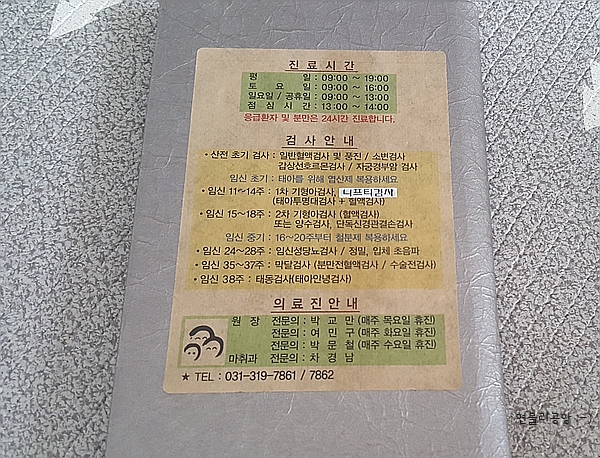 진료시간
평 일 : 09:00 ~ 19:00
토 요 일 : 09:00 ~ 16:00
일요일 / 공휴일 : 09:00 ~ 13:00
점 심 시 간 : 13:00 ~ 14:00
응급환자 및 분만은 24시간 진료합니다.
검사안내
• 산전 초기 검사 : 일반혈액검사 및 풍진 / 소변검사
갑상선호르몬검사 / 자궁경부암 검사
임신 초기 : 태아를 위해 엽산제 복용하세요
• 임신 11~14주 : 1차 기형아검사, 니프티검사
(태아투명대검사 + 혈액검사)
• 임신 15~18주 : 2차 기형아검사 (혈액검사)
또는 양수검사, 단독신경관결손검사
임신 중기 : 16~20주부터 철분제 복용하세요
• 임신 24~28주 : 임신성당뇨검사 / 정밀, 입체 초음파
• 임신 35~37주 : 막달검사 (분만전혈액검사 / 수술전검사)
• 임신 38주 : 태동검사(태아안녕검사)
의료진안내
원 장 전문의 : 박 교 만 (매주 목요일 휴진)
전문의 : 여 민 구 (매주 화요일 휴진)
전문의 : 박 문 철 (매주 수요일 휴진)
마취과 전문의 : 차 경 남
★ TEL : 031-319-7861 / 7862